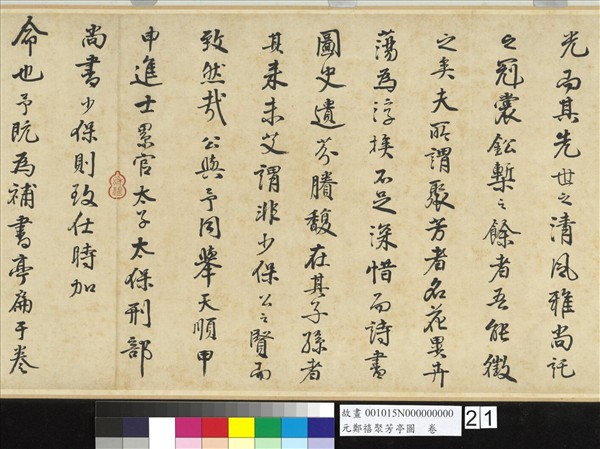 光而其先世之清風雅尚託
之冠裳鉛槧之餘者吾能徵
之矣夫所謂聚芳者名花異卉
蕩為浮埃不足深惜而詩書
圖史遺芬賸馥在其子孫者
其来未艾謂非少保公之賢而
致然哉公與予同舉天順甲
申進士累官太子太保刑部
尚書少保則致仕時加
命也予既為補書亭扁于卷
故畫 001015N000000000
元鄭禧聚芳亭圖 卷
21